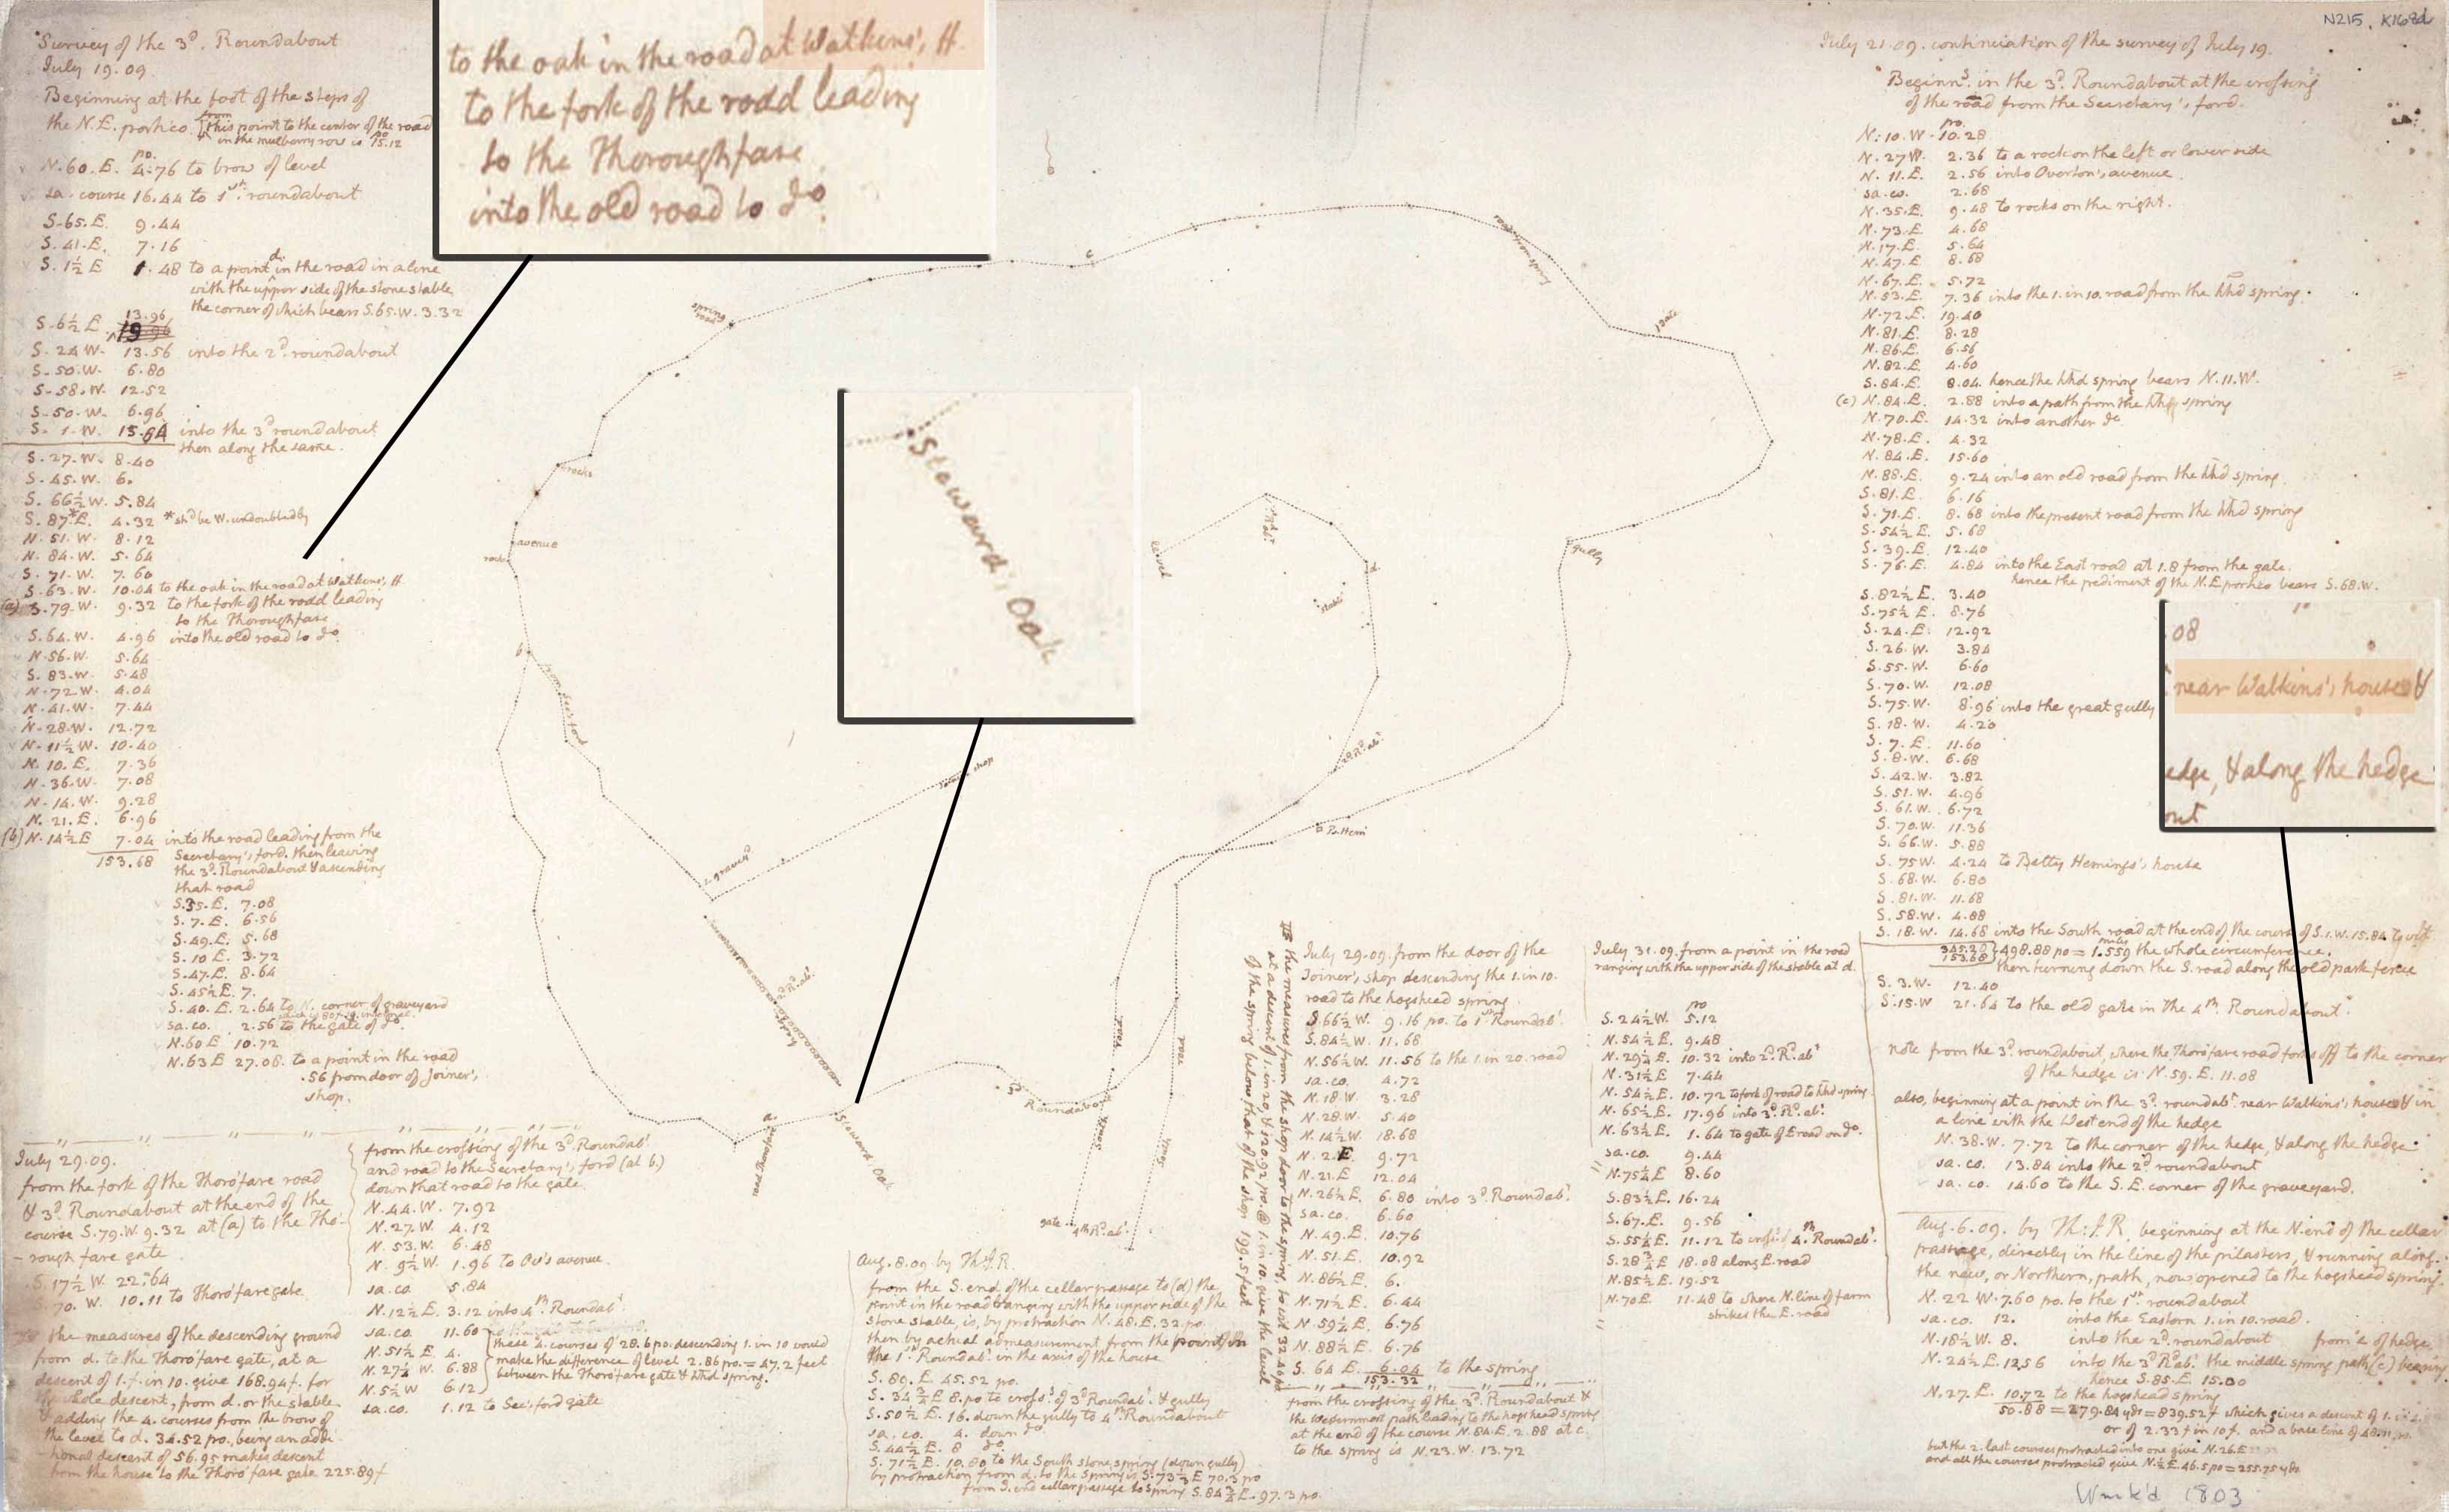 N215. K168d
Survey of the 3d. Roundabout
July 19. 09.
Beginning at the foot of the steps of
the N.E. portico. [from this point to the center of the road
in the mulberry row is 15.12
po.
N. 60. E. 4.76 to brow of level
sa. course 16.44 to 1st. roundabout
S. 65. E. 9.44
S. 41. E. 7.16
S. 1½ E 1.48 to a point d. in the road in a line
with the upper side of the stone stable
the corner of which bears S. 65. W. 3.32
S. 6½ E. 13.96
S. 24 W. 13.56 into the 2d. roundabout
S. 50. W. 6.80
S. 58. W. 12.52
S. 50. W. 6.96
S. 1. W. 15.84 into the 3d roundabout
then along the same.
S. 27. W. 8.40
S. 45. W. 6.
S. 66½ W. 5.84
S. 87.* E. 4.32 * shd be W. undoubtedly
N. 51. W. 8.12
N. 84. W. 5.64
S. 71. W. 7.60
S. 63. W. 10.04 to the oak in the road at Watkins's H.
(a) S. 79. W. 9.32 to the fork of the road leading
to the Thoroughfare
S. 64. W. 4.96 into the old road to do.
N. 56. W. 5.64
S. 83. W. 5.48
N. 72. W. 4.04
N. 41. W. 7.44
N. 28. W. 12.72
N. 11½ W. 10.40
N. 10. E. 7.36
N. 36. W. 7.08
N. 14. W. 9.28
N. 21. E. 6.96
(b) N. 14½ E 7.04 into the road leading from the
153.68 Secretary's ford. then leaving
the 3d. Roundabout & ascending
that road
S. 35. E. 7.08
S. 7. E. 6.56
S. 49. E. 5.68
S. 10 E. 3.72
S. 47. E. 8.64
S. 45½ E. 7.
S. 40. E. 2.64 to N. corner of graveyard
sa. co. 2.56 to the gate of do.
N. 60 E 10.72
N. 63 E 27.08. to a point in the road
.56 from door of Joiner's
shop.
to the oak in the road at Watkins's H.
to the fork of the road leading
to the Thoroughfare
into the old road to do.
Steward's Oak
08
near Watkins's house &
edge, & along the hedge
out
spring road
rocks
avenue
rock
b
from Sec's ford
joiner's shop
graveyd.
2d. R. abt.
a.
Steward's Oak
3d Roundabout
c
road from spring
gate
gully
level
1st R. abt.
d.
stable
2d. R. abt.
B. Hem'
South road
South road
gate 4th R. abt.
July 29. 09.
from the fork of the Thorofare road
& 3d. Roundabout at the end of the
course S. 79. W. 9.32 at (a) to the Tho-
rough fare gate
S. 17½ W. 22.64
S. 70. W. 10.11 to Thorofare gate.
the measures of the descending ground
from d. to the Thorofare gate, at a
descent of 1. f. in 10. give 168.94 f. for
the whole descent, from d. or the stable
& adding the 4. courses from the brow of
the level to d. 34.52 po., being an addi-
tional descent of 56.95 makes descent
from the house to the Thorofare gate 225.89 f
from the crossing of the 3d Roundabt.
and road to the Secretary's ford (at b.)
down that road to the gate.
N. 44. W. 7.92
N. 27. W. 4.12
N. 53. W. 6.48
N. 9½ W. 1.96 to Ov's avenue.
sa. co. 5.84
N. 12½ E. 3.12 into 4th. Roundabt.
sa. co. 11.60
N. 51½ E. 4.
N. 27½ W. 6.88
N. 5½ W 6.12
these 4. courses of 28.6 po. descending 1. in 10 would
make the difference of level 2.86 po. = 47.2 feet
between the Thorofare gate & hhd spring.
sa. co. 1.12 to Sec's ford gate
Aug. 8. 09 by Th: J. R.
from the S. end. of the cellar passage to (d) the
point in the road ranging with the upper side of the
stone stable, is, by protraction N. 48. E. 32. po.
then by actual admeasurement from the point in
the 1st Roundabt. in the axis of the house
S. 89. E. 45.52 po.
S. 34¾ E 8. po to crossg of 3d Roundabt. & gully
S. 50½ E. 16. down the gully to 4th Roundabout
sa. co. 4. down do.
S. 44½ E. 8 do.
S. 71½ E. 10.80 to the South stone spring (down gully)
by protraction from d. to the Spring is S. 73½ E 70.3 po
from S. end cellar passage to Spring S. 84¾ E. 97.3 po.
the measures from the shop door to the spring, to wit 32.46 po
at a descent of 1. in 20. & 120.92 po. @ 1. in 10. give the level
of the spring below that of the shop 199.5 feet
July 29. 09. from the door of the
Joiner's shop descending the 1. in 10.
road to the hogshead spring.
S. 66½ W. 9.16 po. to 1st Roundabt.
S. 84½ W. 11.68
N. 56½ W. 11.56 to the 1. in 20. road
sa. co. 4.72
N. 18. W 3.28
N. 28. W. 5.40
N. 14½ W. 18.68
N. 2. E. 9.72
N. 21. E 12.04
N. 26½ E. 6.80 into 3d. Roundabt.
sa. co. 6.60
N. 49. E. 10.76
N. 51. E. 10.92
N. 86½ E. 6.
N. 71½ E. 6.44
N. 59½ E. 6.76
N. 88½ E. 6.76
S. 64 E. 6.04 to the spring
153.32
from the crossing of the 3d. Roundabout &
the Westernmost path leading to the hogshead spring
at the end of the course N. 84. E. 2.88 at c.
to the spring is N. 23. W. 13.72
July 31. 09. from a point in the road
ranging with the upper side of the stable at d.
po
S. 24½ W. 5.12
N. 54½ E. 9.48
N. 29½ E. 10.32 into 2d. R. abt
N. 31½ E 7.44
N. 54½ E. 10.72 to fork of road to hhd spring
N. 65½ E. 17.96 into 3d. R. abt.
N. 63½ E. 1.64 to gate of E road on do.
sa. co. 9.44
N. 75½ E 8.60
S. 83½ E. 16.24
S. 67. E. 9.56
S. 55½ E. 11.12 to crossg of 4th. Roundabt.
S. 28¾ E 18.08 along E. road
N. 85½ E. 19.52
N. 70 E. 11.48 to where N. line of farm
strikes the E. road
July 21. 09. continuation of the survey of July 19.
Beginng. in the 3d. Roundabout at the crossing
of the road from the Secretary's ford.
po.
N. 10. W. 10.28
N. 27 W. 2.36 to a rock on the left or lower side
N. 11. E. 2.56 into Overton's avenue.
sa. co. 2.68
N. 35. E. 9.48 to rocks on the right.
N. 73. E 4.68
N. 17. E. 5.64
N. 47. E 8.68
N. 67. E. 5.72
N. 53. E. 7.36 into the 1. in 10. road from the hhd spring.
N. 72. E. 19.40
N. 81. E. 8.28
N. 86. E. 6.56
N. 82. E. 4.60
S. 84. E. 8.04. hence the hhd spring bears N. 11. W.
(c) N. 84. E. 2.88 into a path from the hhd spring
N. 70. E. 14.32 into another do.
N. 78. E. 4.32
N. 84. E. 15.60
N. 88. E. 9.24 into an old road from the hhd spring.
S. 81. E. 6.16
S. 71. E. 8.68 into the present road from the hhd spring
S. 54½ E. 5.68
S. 39. E. 12.40
S. 76. E. 4.84 into the East road at 1.8 from the gate.
hence the pediment of the N.E. portico bears S. 68. W.
S. 82½ E. 3.40
S. 75½ E. 8.76
S. 24. E. 12.92
S. 26. W. 3.84
S. 55. W. 6.60
S. 70. W. 12.08
S. 75. W 8.96 into the great gully
S. 18. W. 4.20
S. 7. E. 11.60
S. 8. W. 6.68
S. 42. W. 3.82
S. 51. W. 4.96
S. 61. W. 6.72
S. 70. W. 11.36
S. 66. W. 5.88
S. 75 W. 4.24 to Betty Hemings's house
S. 68. W. 6.80
S. 81. W. 11.68
S. 58. W. 4.88
S. 18. W. 14.68 into the South road at the end of the course of S. 1. W. 15.84
345.20
153.68 } 498.88 po = 1.559 miles the whole circumference.
then turning down the S. road along the old park fence
S. 3. W. 12.40
S. 15. W 21.64 to the old gate in the 4th Roundabout.
note from the 3d. roundabout, where the Thorofare road forks off to the corner
of the hedge is N. 59. E. 11.08
also, beginning at a point in the 3d. roundabt. near Watkins's house & in
a line with the West end of the hedge
N. 38. W. 7.72 to the corner of the hedge, & along the hedge
sa. co. 13.84 into the 2d roundabout
sa. co. 14.60 to the S.E. corner of the graveyard.
Aug. 6. 09. by Th: J. R. beginning at the N. end of the cellar
passage, directly in the line of the pilasters, & running along
the new, or Northern, path, now opened to the hogshead spring.
N. 22 W. 7.60 po. to the 1st. roundabout
sa. co. 12. into the Eastern 1. in 10. road.
N. 18½ W. 8. into the 2d. roundabout from c of hedge
N. 24½ E. 12.56 into the 3d R. abt. the middle spring path (c) bearing
hence S. 85. E. 15.00
N. 27. E. 10.72 to the hogshead spring
50.88 = 279.84 yds = 839.52 f which gives a descent of 1.
or of 2.33 f in 10 f. and a base line of
but the 2. last courses protracted into one give N. 26. E
and all the courses protracted give N. ½ E. 46.5 po = 255.75 yds